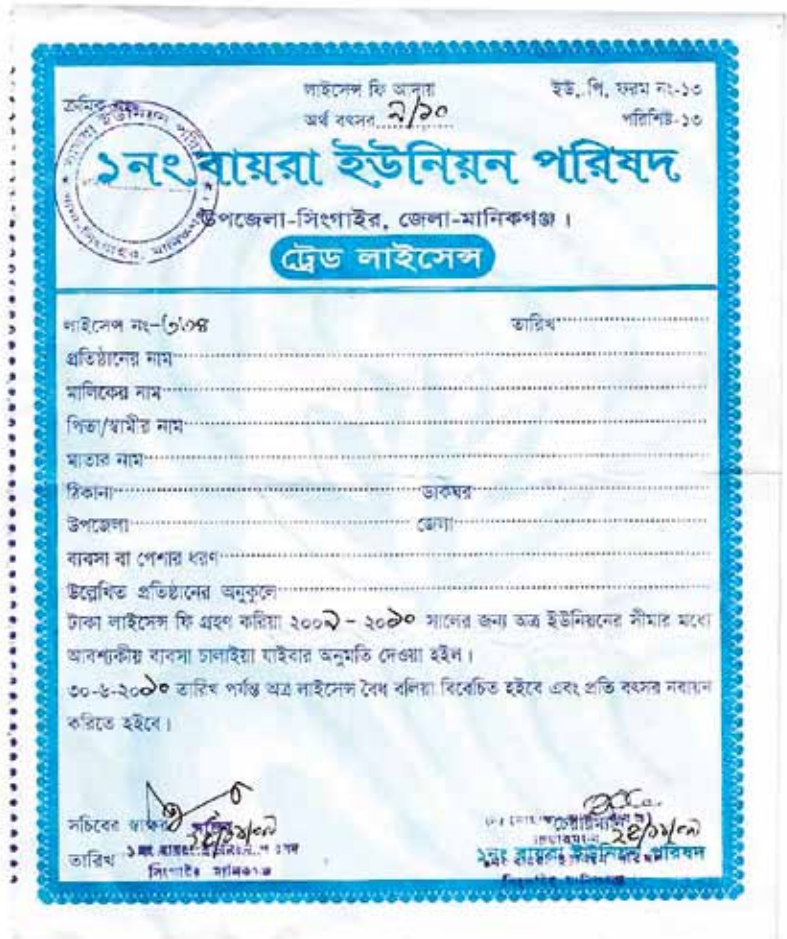 ক্রমিক নং
লাইসেন্স ফি আদায়
ইউ, পি, ফরম নং-১৩
অর্থ বৎসর ৯/১০
পরিশিষ্ট-১৩
১নং বায়রা ইউনিয়ন পরিষদ
উপজেলা-সিংগাইর, জেলা-মানিকগঞ্জ।
ট্রেড লাইসেন্স
লাইসেন্স নং-
তারিখ
প্রতিষ্ঠানের নাম
মালিকের নাম
পিতা/স্বামীর নাম
মাতার নাম
ঠিকানা ডাকঘর
উপজেলা জেলা
ব্যবসা বা পেশার ধরণ
উল্লেখিত প্রতিষ্ঠানের অনুকূলে
টাকা লাইসেন্স ফি গ্রহণ করিয়া ২০০৯ - ২০১০ সালের জন্য অত্র ইউনিয়নের সীমার মধ্যে
আবশ্যকীয় ব্যবসা চালাইয়া যাইবার অনুমতি দেওয়া হইল।
৩০-৬-২০১০ তারিখ পর্যন্ত অত্র লাইসেন্স বৈধ বলিয়া বিবেচিত হইবে এবং প্রতি বৎসর নবায়ন
করিতে হইবে।
সচিবের স্বাক্ষর
চেয়ারম্যান
তারিখ
১নং বায়রা ইউনিয়ন পরিষদ